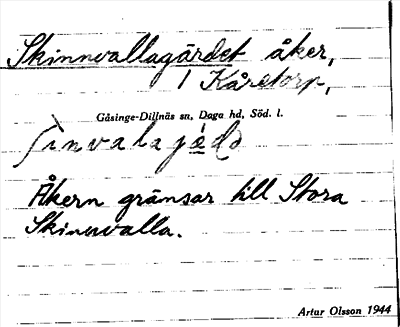 Skinnvallagärdet åker,
1 Kåretorp,
Gåsinge-Dillnäs sn, Daga hd, Söd. l.
Åkern gränsar till Stora
Skinnvalla.
Artur Olsson 1944